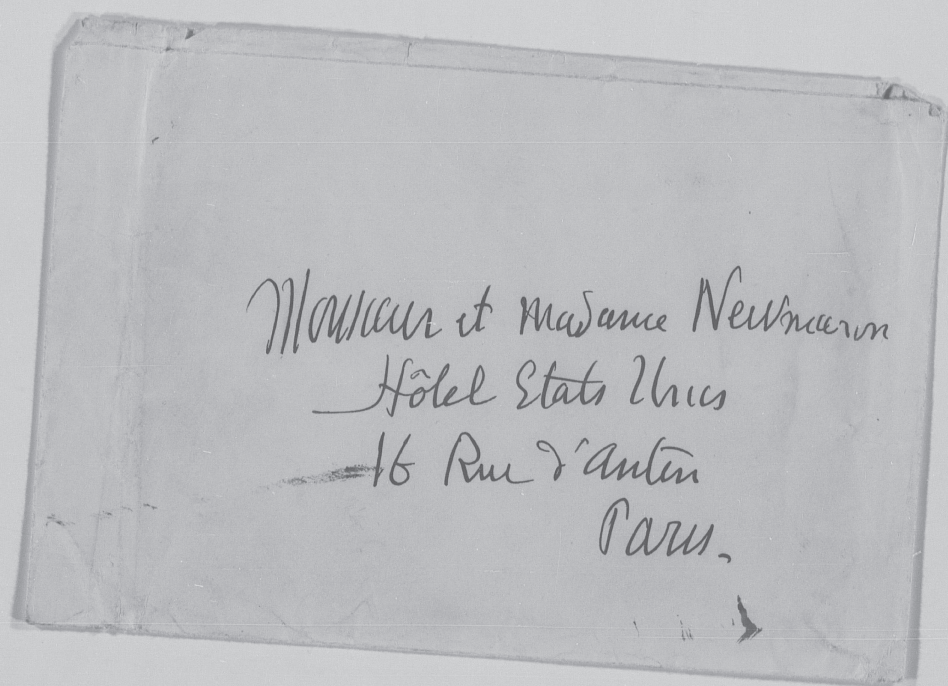 Monsieur et Madame Newmann
Hôtel Etats Unies
16 Rue d'Antin
Paris.